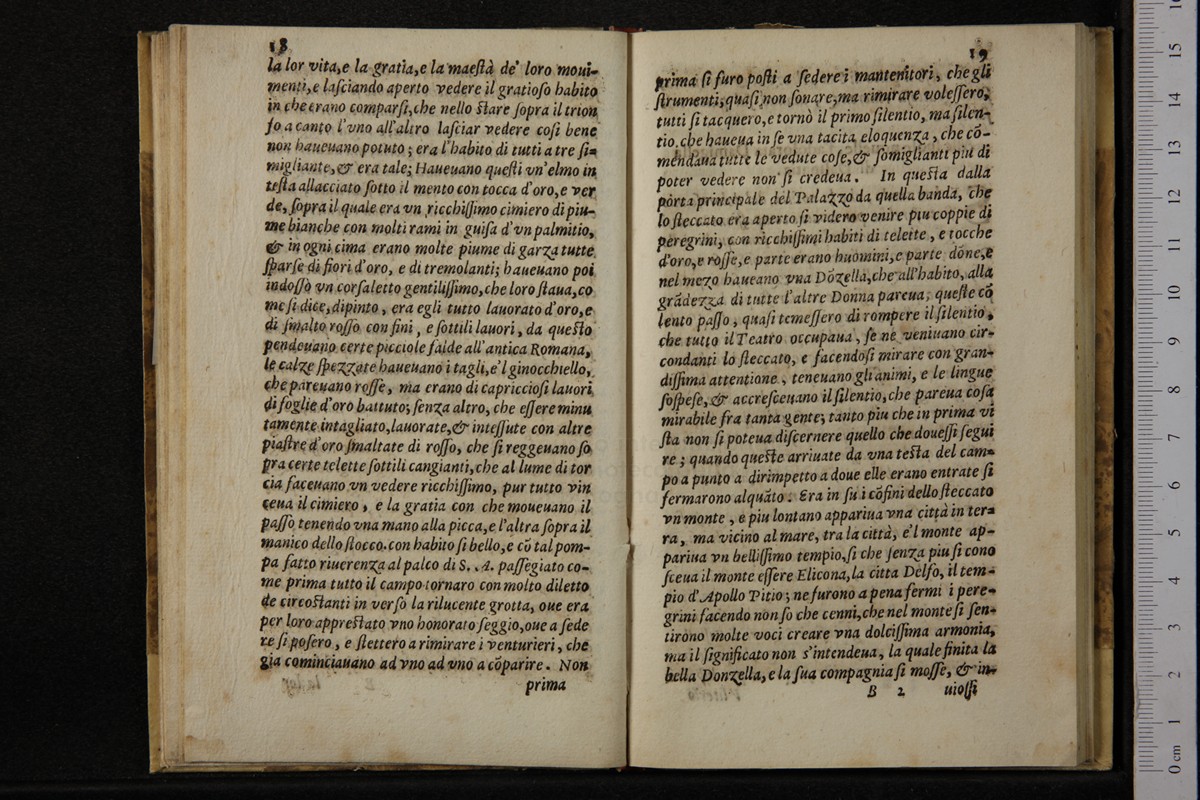 18
la lor vita,e la gratia,e la maeſtà de' loro moui-
menti,e laſciando aperto vedere il gratioſo habito
in che erano comparſi,che nello ſtare ſopra il trion
fo a canto l'vno all'altro laſciar vedere coſi bene
non haueuano potuto; era l'habito di tutti a tre ſi-
migliante,& era tale; Haueuano queſti vn'elmo in
teſta allacciato ſotto il mento con tocca d'oro,e ver
de, ſopra il quale era vn ricchiſſimo cimiero di piu-
me bianche con molti rami in guiſa d'vn palmitio,
& in ogni cima erano molte piume di garza tutte
ſparſe di fiori d'oro, e di tremolanti; haueuano poi
indoſſo vn corſaletto gentiliſſimo,che loro ſtaua,co
me ſi dice,dipinto, era egli tutto lauorato d'oro,e
di ſmalto roſſo con fini, e ſottili lauori, da queſto
pendeuano certe picciole falde all'antica Romana,
le calze ſpezzate haueuano i tagli,e'l ginocchiello,
che pareuano roſſe, ma erano di capriccioſi lauori
di foglie d'oro battuto; ſenza altro, che eſſere minu
tamente intagliato,lauorate,& inteſſute con altre
piaſtre d'oro ſmaltate di roſſo, che ſi reggeuano ſo
pra certe telette ſottili cangianti,che al lume di tor
cia faceuano vn vedere ricchiſſimo, pur tutto vin
ceua il cimiero, e la gratia con che moueuano il
paſſo, tenendo vna mano alla picca,e l'altra ſopra il
manico dello ſtocco.con habito ſi bello,e cō tal pom-
pa fatto riuerenza al palco di S. A. paſſegiato co-
me prima tutto il campo tornaro con molto diletto
de circoſtanti in verſo la rilucente grotta, oue era
per loro appreſtato vno honorato ſeggio,oue a ſede
re ſi poſero, e ſtettero a rimirare i venturieri, che
gia cominciauano ad vno ad vno a cōparire. Non
prima
19
prima ſi furo poſti a ſedere i mantenitori, che gli
ſtrumenti,quaſi non ſonare,ma rimirare voleſſero,
tutti ſi tacquero,e tornò il primo ſilentio, ma ſilen-
tio che haueua in ſe vna tacita eloquenza, che cō-
mendaua tutte le vedute coſe,& ſomiglianti piu di
poter vedere non ſi credeua. In queſta dalla
porta principale del Palazzo da quella banda, che
lo ſteccato era aperto ſi videro venire piu coppie di
peregrini, con ricchiſſimi habiti di telette, e tocche
d'oro,e roſſe,e parte erano huomini,e parte dōne,e
nel mezo haueano vna Dōzella,che all'habito, alla
grādezza di tutte l'altre Donna pareua; queſte cō
lento paſſo, quaſi temeſſero di rompere il ſilentio,
che tutto il Teatro occupaua, ſe ne veniuano cir-
condanti lo ſteccato, e facendoſi mirare con gran-
diſſima attentione, teneuano gli animi, e le lingue
ſoſpeſe,& accreſceuano il ſilentio,che pareua coſa
mirabile fra tanta gente; tanto piu che in prima vi
ſta non ſi poteua diſcernere quello che doueſſi ſegui
re; quando queſte arriuate da vna teſta del cam-
po a punto a dirimpetto a doue elle erano entrate ſi
fermarono alquāto. Era in ſu i cōfini dello ſteccato
vn monte, e piu lontano appariua vna città in ter-
ra, ma vicino al mare, tra la città, e'l monte ap-
pariua vn belliſſimo tempio,ſi che ſenza piu ſi cono
ſceua il monte eſſere Elicona,la citta Delfo, il tem-
pio d'Apollo Pitio; ne furono a pena fermi i pere-
grini facendo non ſo che cenni,che nel monte ſi ſen-
tirono molte voci creare vna dolciſſima armonia,
ma il ſignificato non s'intendeua, la quale finita la
bella Donzella,e la ſua compagnia ſi moſſe, & in-
B 2 uioſſi